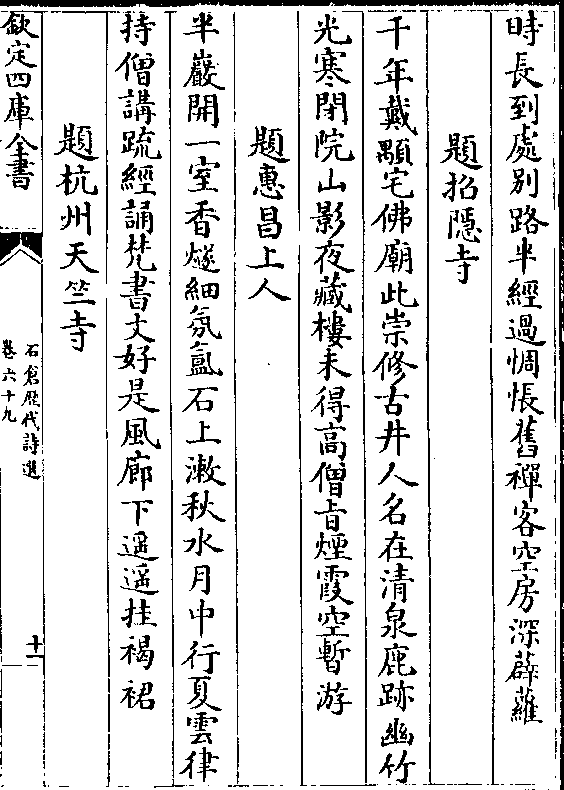 時長到處別路半經過惆悵舊禪客空房深薜蘿
題招隱寺
千年戴顒宅佛廟此崇修古井人名在清泉鹿跡幽竹
光寒閉院山影夜藏樓未得高僧旨煙霞空暫游
題惠昌上人
半巖開一室香燧細氛氳石上漱秋水月中行夏雲律
持僧講疏經誦梵書文好是風廊下遥遥挂褐裙
題杭州天竺寺
欽定四庫全書
石倉歴代詩選
卷六十九
十一